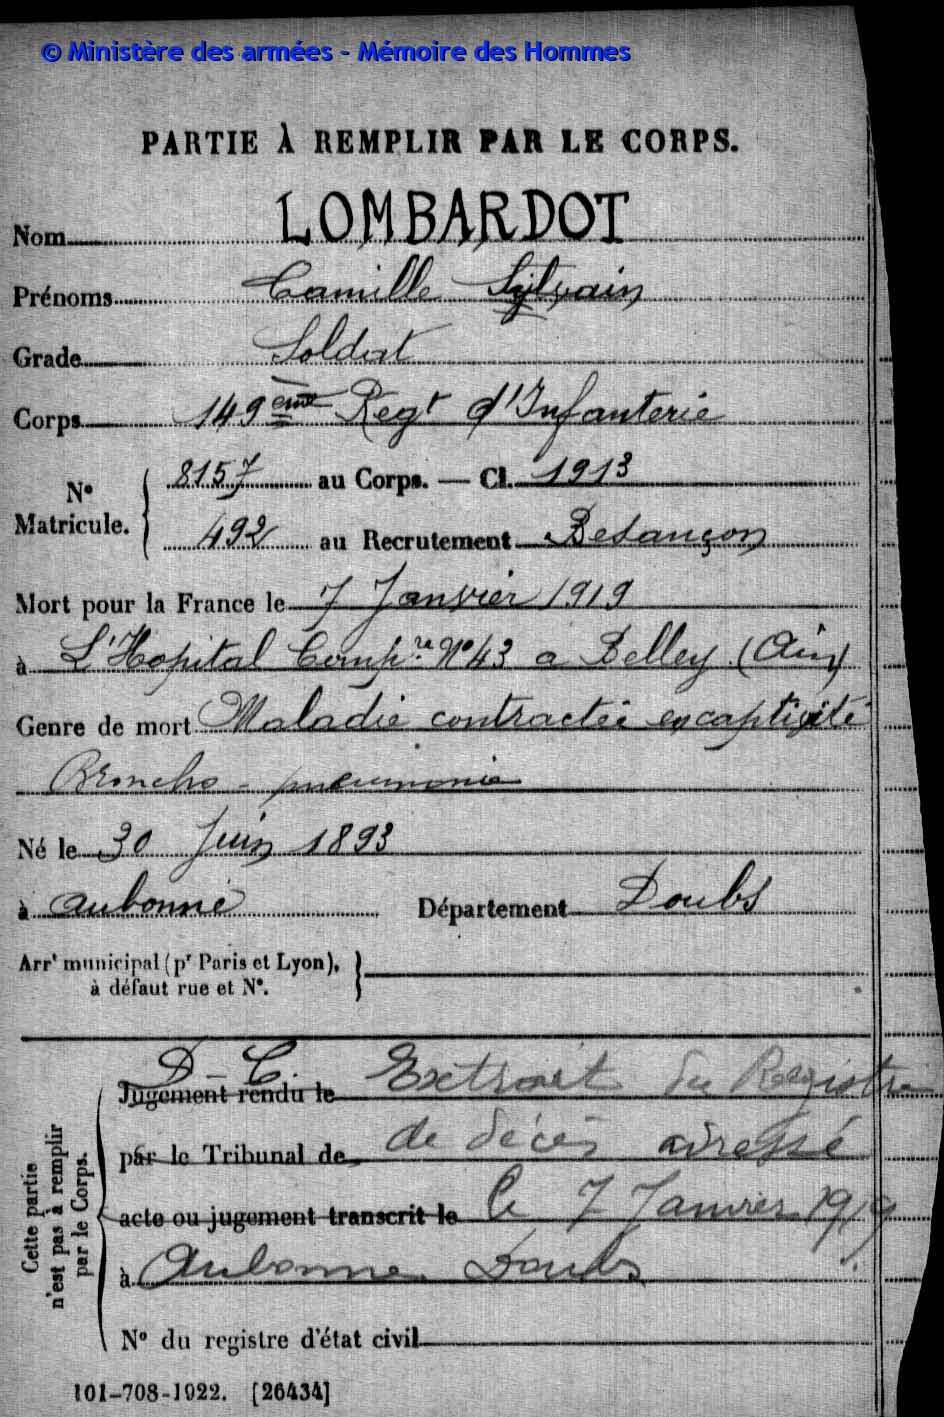 © Ministère des armées - Mémoire des Hommes
PARTIE À REMPLIR PAR LE CORPS.
Nom LOMBARDOT
Prénoms Camille Sylvain
Grade Soldat
Corps 149ème Regt d'Infanterie
N° Matricule. 8157 au Corps. — Cl. 1913
492 au Recrutement Besançon
Mort pour la France le 7 Janvier 1919
à L'Hopital Comp.re N°43 a Belley (Ain)
Genre de mort Maladie contractée en captivité
Broncho - pneumonie
Né le 30 Juin 1893
à aubonne Département Doubs
Arrt municipal (pr Paris et Lyon),
à défaut rue et N°.
Cette partie n'est pas à remplir par le Corps.
D - C.
Jugement rendu le Extrait du Registre
par le Tribunal de de décès adressé
acte ou jugement transcrit le le 7 Janvier 1919
à Aubonne Doubs
N° du registre d'état civil
101-708-1922. [26434]